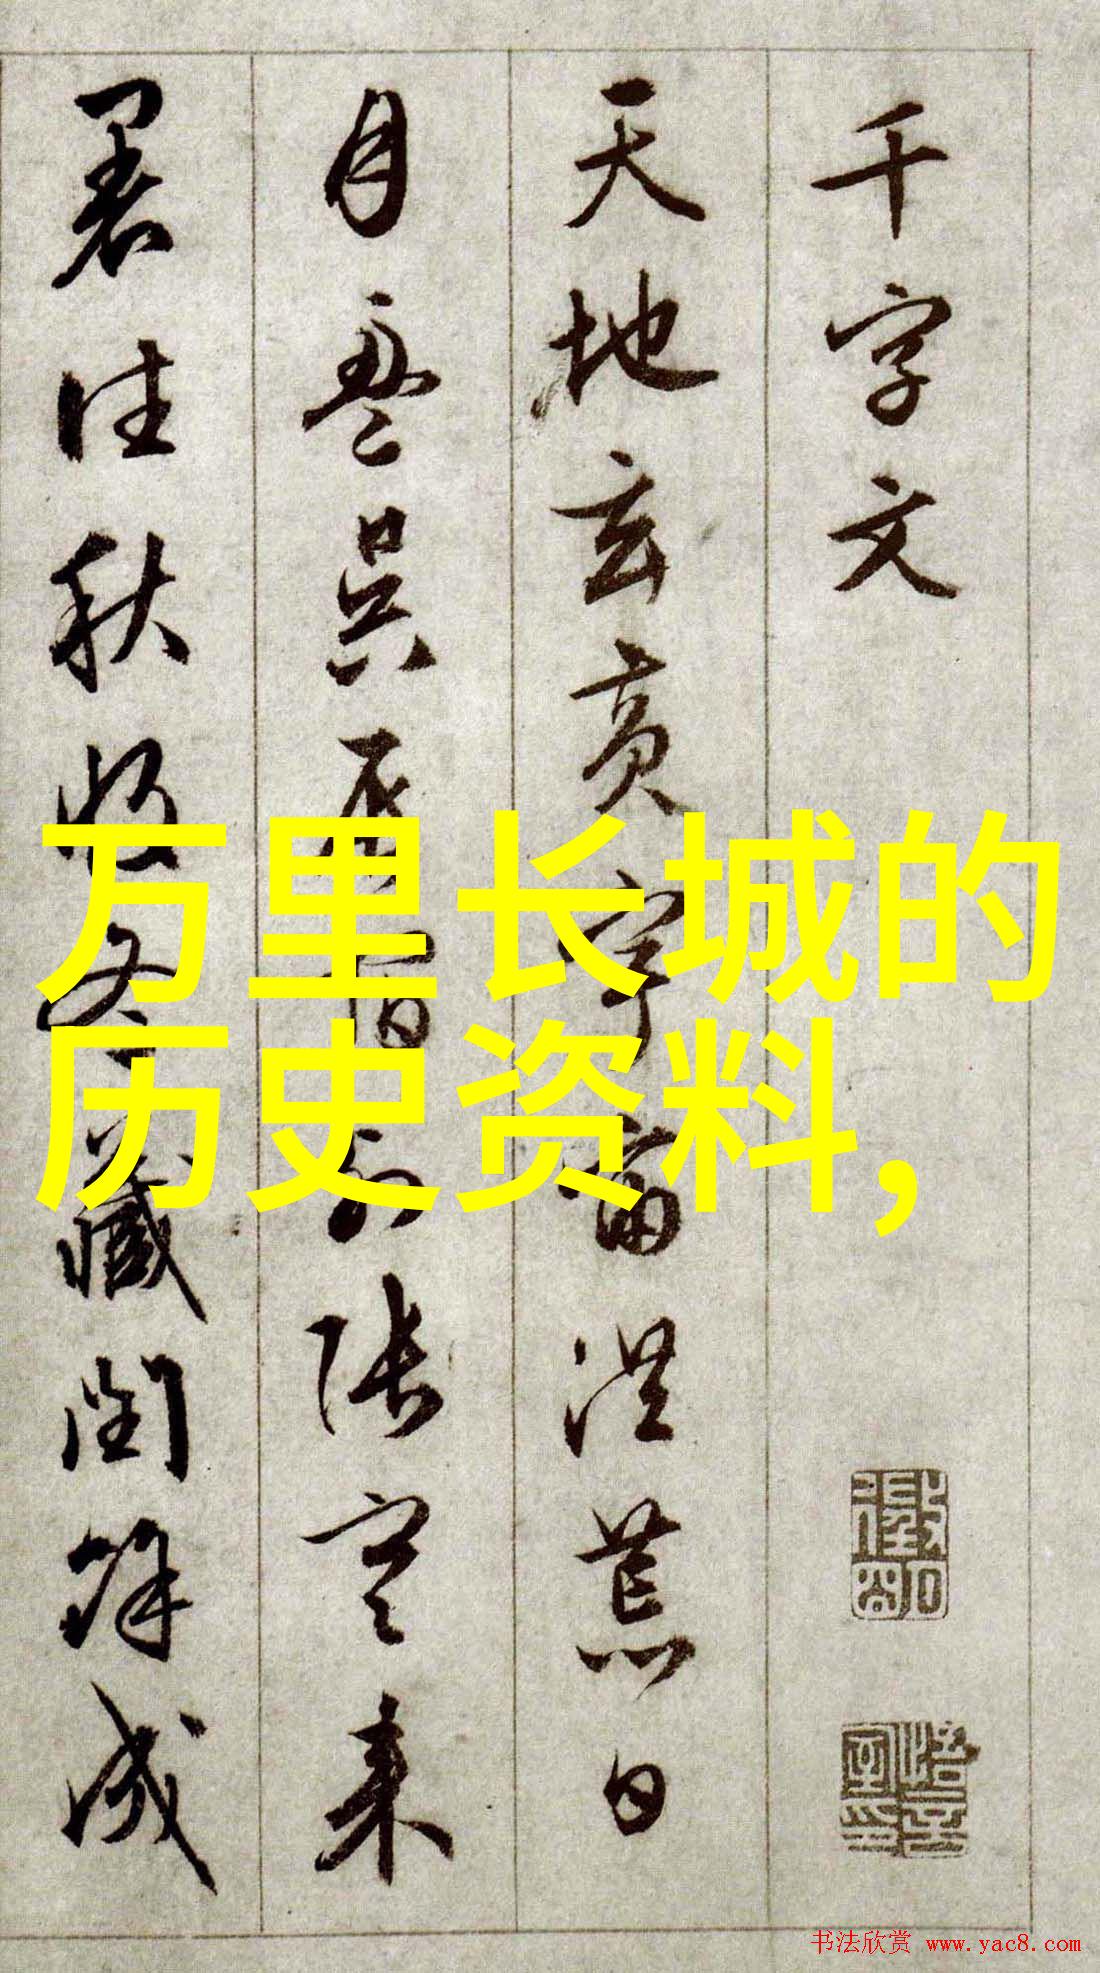 千字文
天地玄黄宇宙洪荒日
月盈昃辰宿列张寒来
暑往秋收冬藏閏餘成
万里长城的
历史资料,
书法欣赏 www.yac8.com